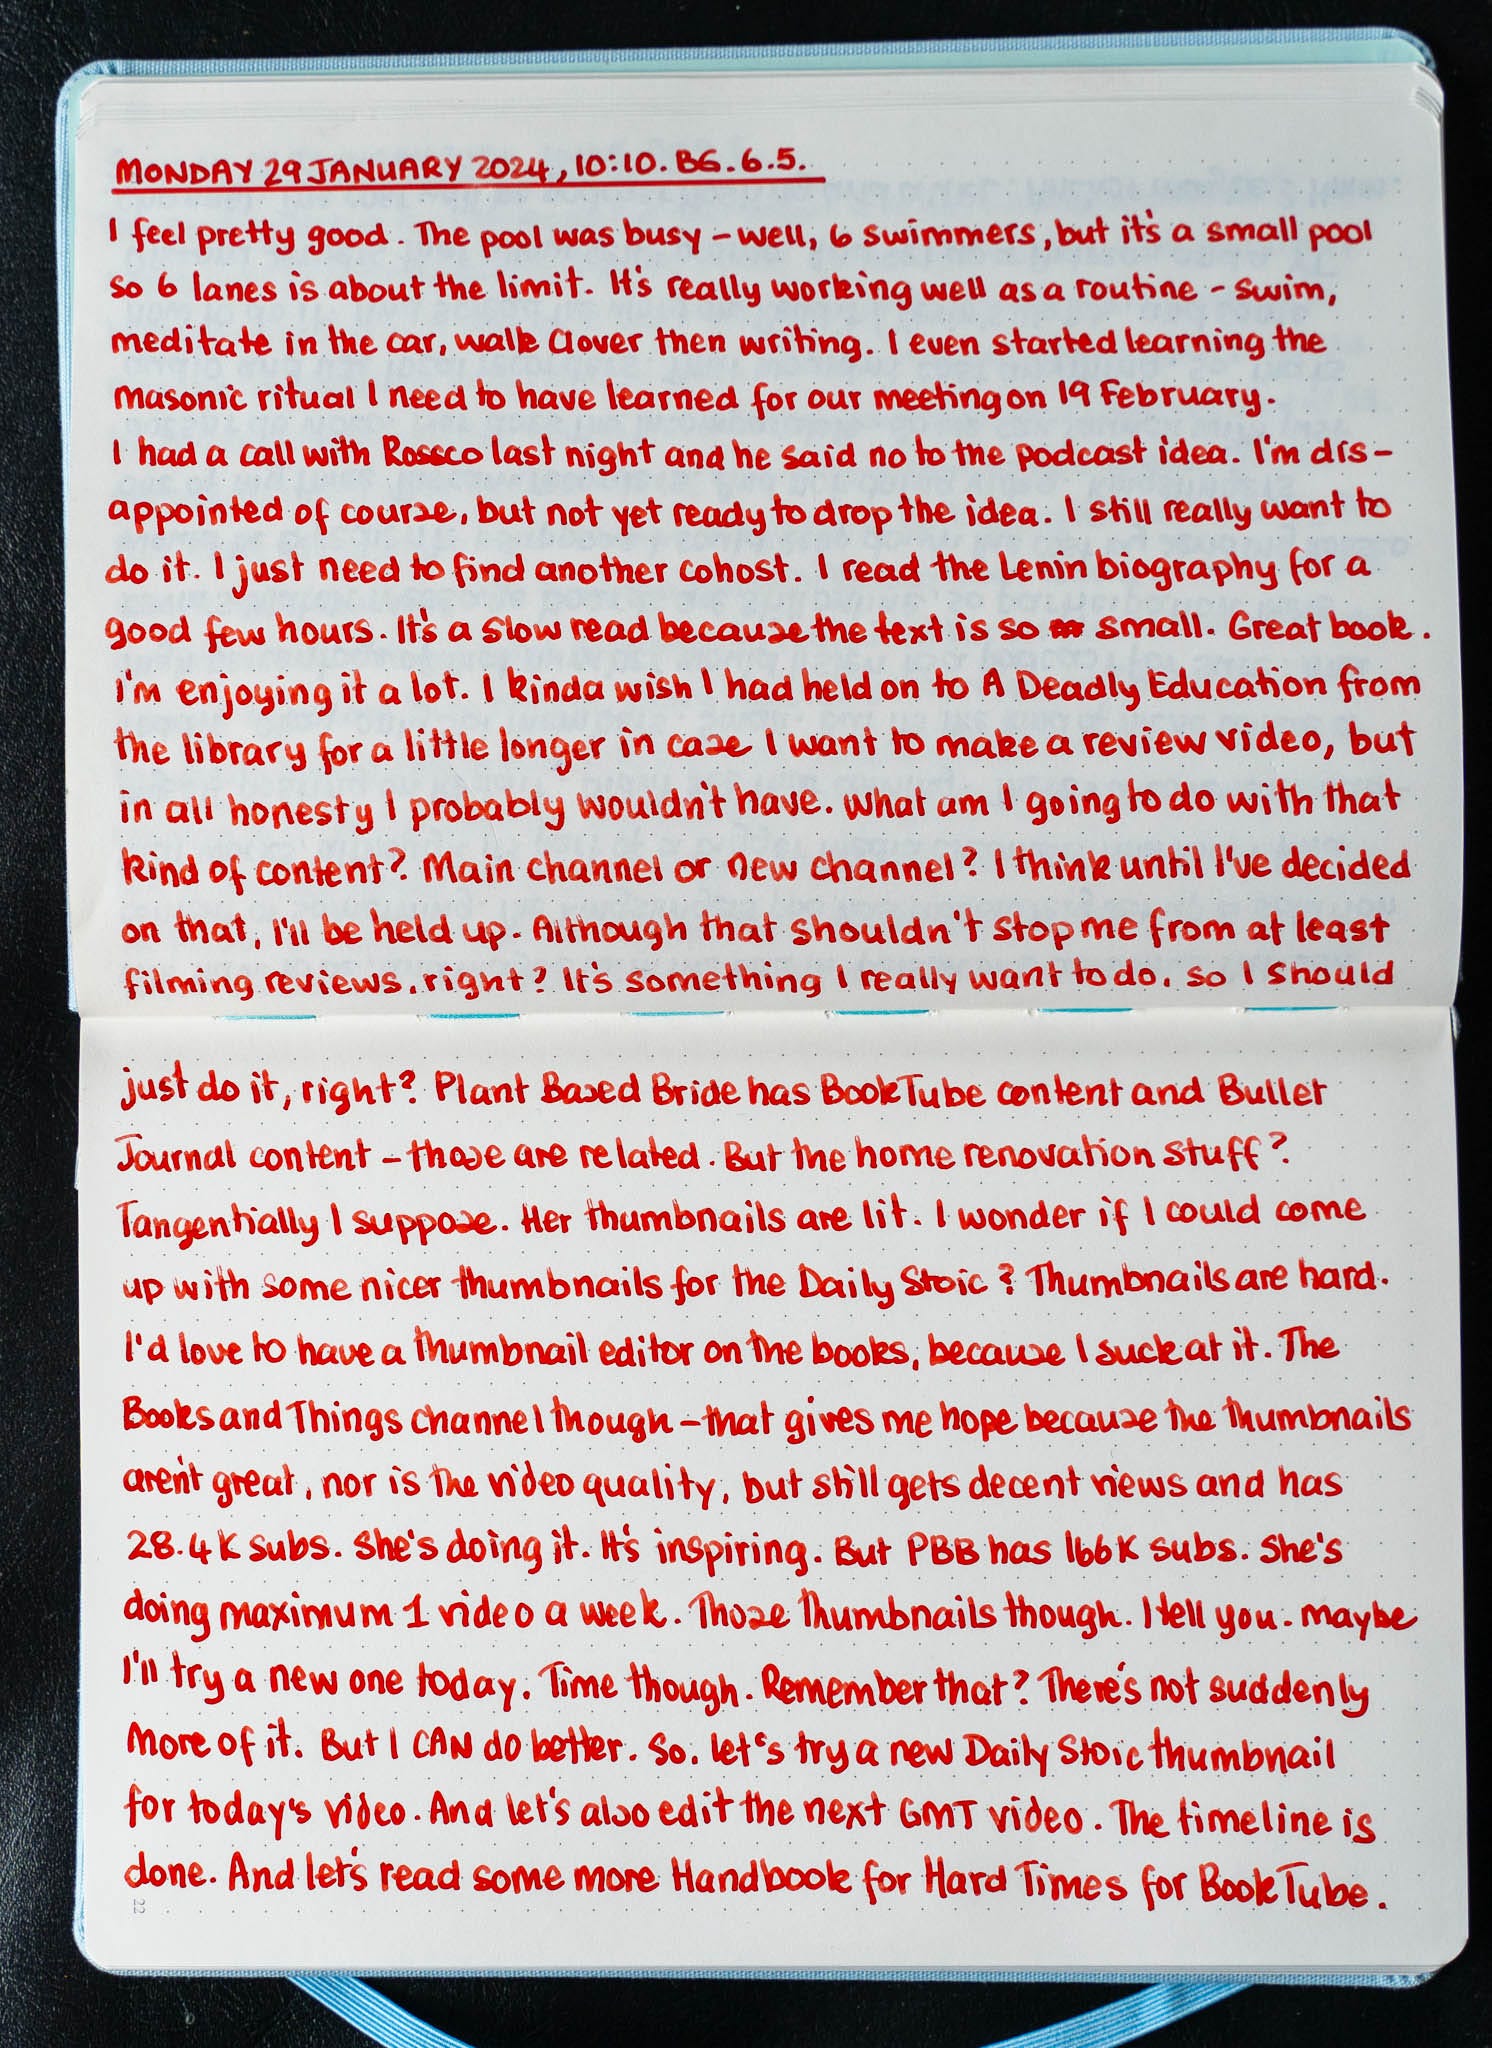 MONDAY 29 JANUARY 2024, 10:10. BG. 6.5.
I feel pretty good. The pool was busy – well, 6 swimmers, but it's a small pool
so 6 lanes is about the limit. It's really working well as a routine – swim,
meditate in the car, walk Clover then writing. I even started learning the
masonic ritual I need to have learned for our meeting on 19 February.
I had a call with Rossco last night and he said no to the podcast idea. I'm dis-
appointed of course, but not yet ready to drop the idea. I still really want to
do it. I just need to find another cohost. I read the Lenin biography for a
good few hours. It's a slow read because the text is so small. Great book.
I'm enjoying it a lot. I kinda wish I had held on to A Deadly Education from
the library for a little longer in case I want to make a review video, but
in all honesty I probably wouldn't have. What am I going to do with that
kind of content? Main channel or new channel? I think until I've decided
on that, I'll be held up. Although that shouldn't stop me from at least
filming reviews, right? It's something I really want to do, so I should
just do it, right? Plant Based Bride has BookTube content and Bullet
Journal content – those are related. But the home renovation stuff?
Tangentially I suppose. Her thumbnails are lit. I wonder if I could come
up with some nicer thumbnails for the Daily Stoic? Thumbnails are hard.
I'd love to have a thumbnail editor on the books, because I suck at it. The
Books and Things channel though – that gives me hope because the thumbnails
aren't great, nor is the video quality, but still gets decent views and has
28.4K subs. She's doing it. It's inspiring. But PBB has 166K subs. She's
doing maximum 1 video a week. Those thumbnails though. I tell you. Maybe
I'll try a new one today. Time though. Remember that? There's not suddenly
more of it. But I CAN do better. So, let's try a new Daily Stoic thumbnail
for today's video. And let's also edit the next GMT video. The timeline is
done. And let's read some more Handbook for Hard Times for BookTube.
22